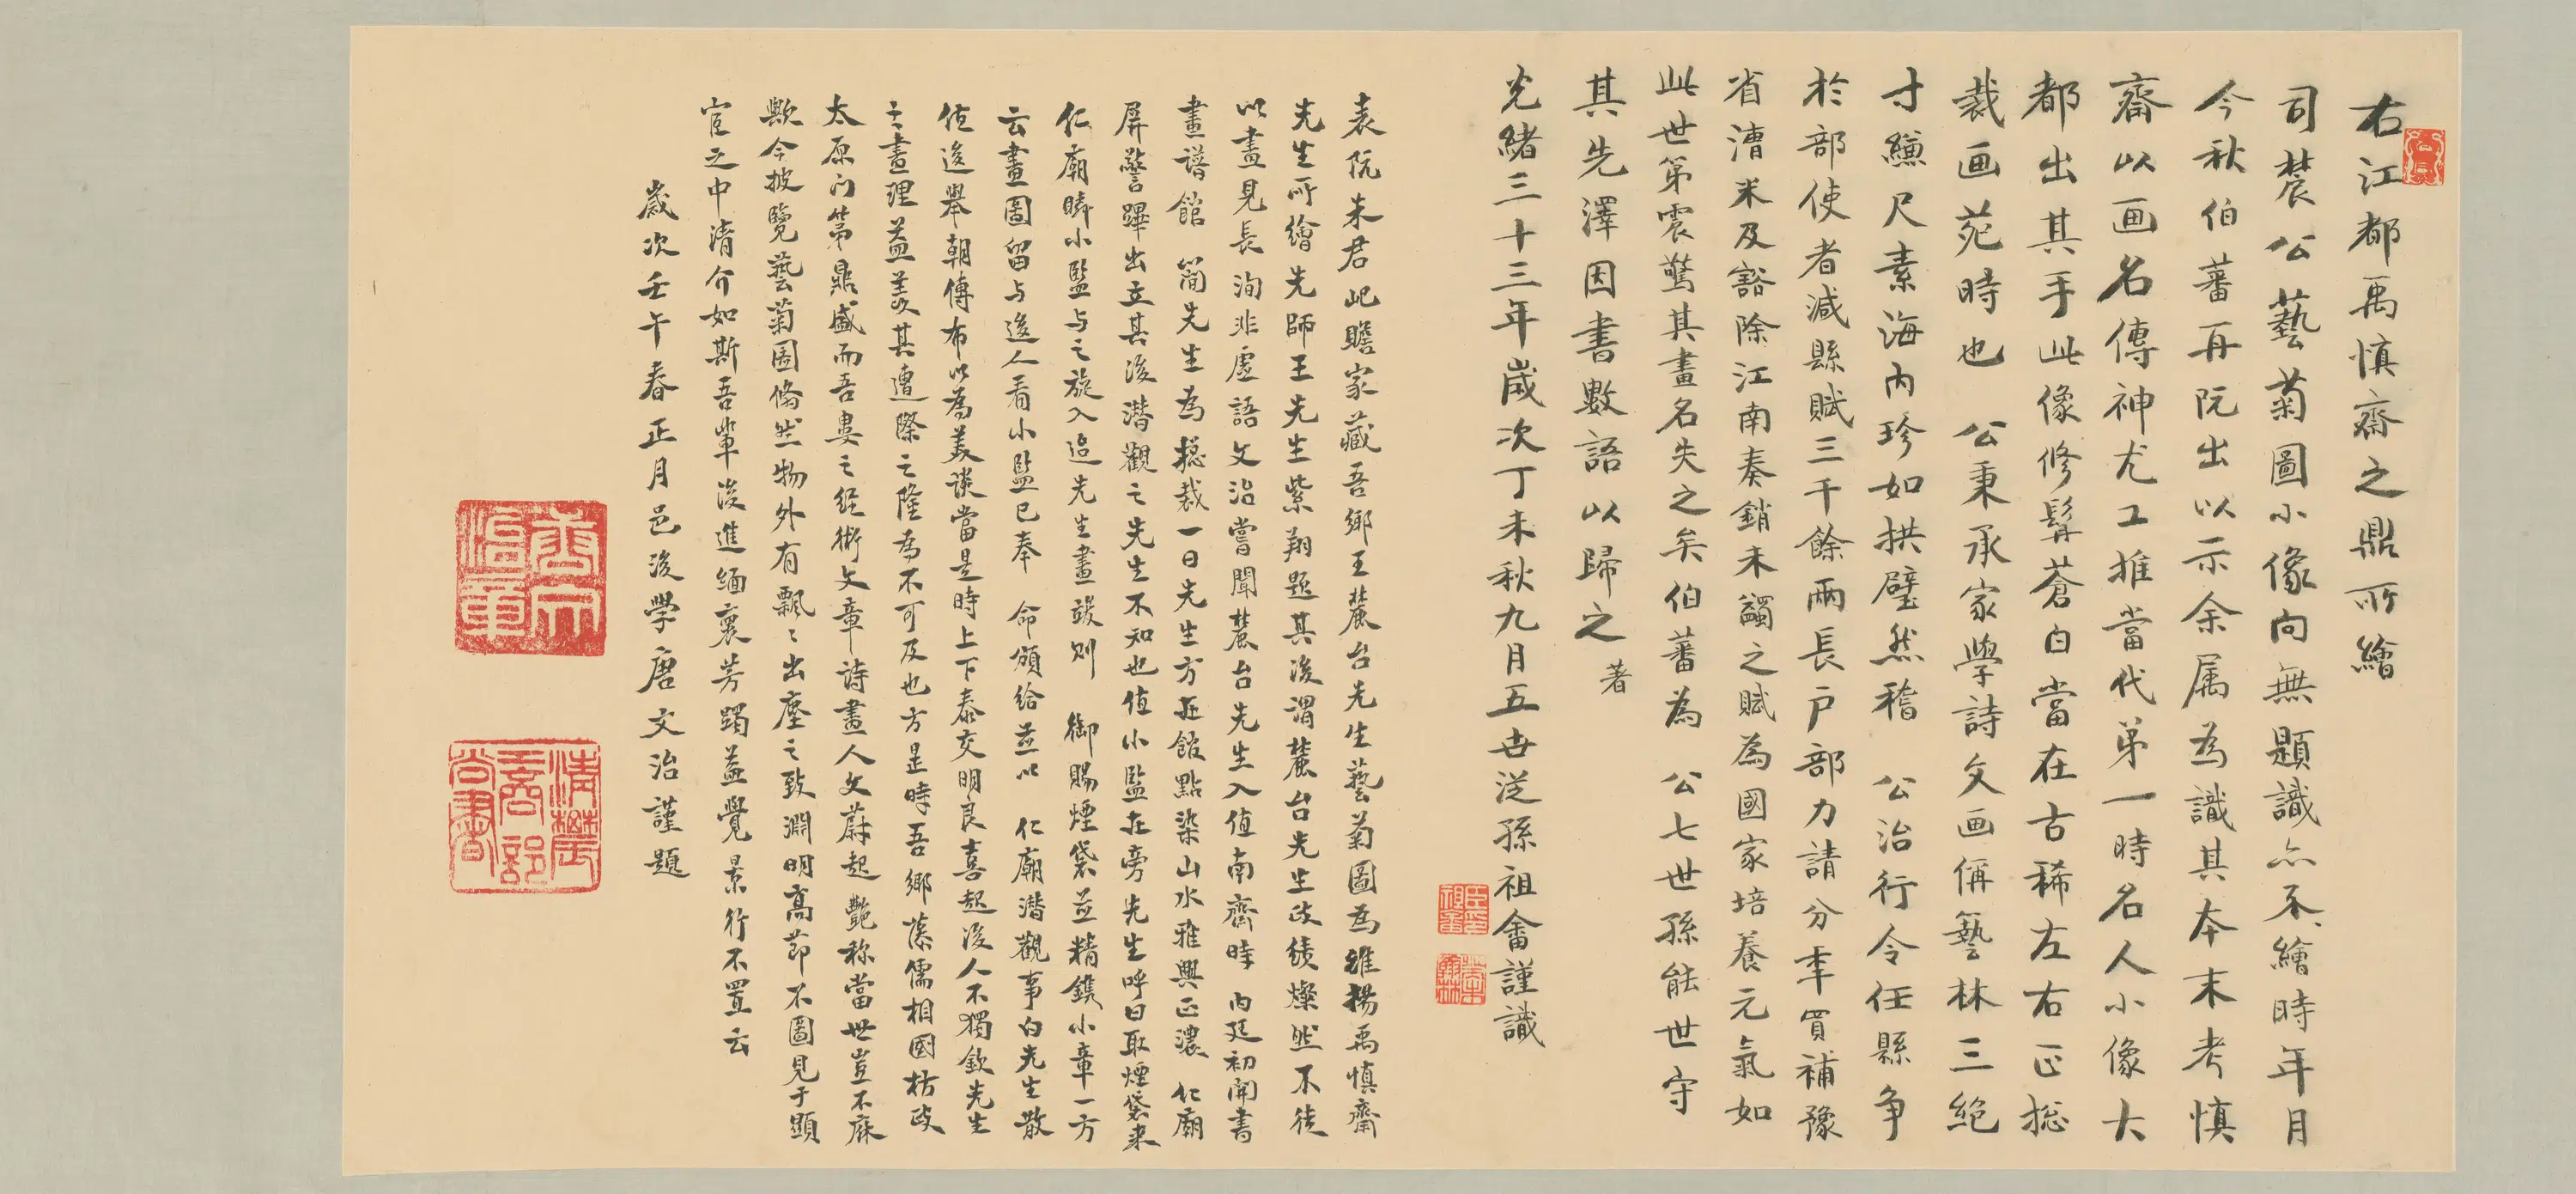 右江都禹慎齋之鼎所繪
司農公藝菊圖小像向無題識亦不繪時年月
今秋伯蕃再阮出以示余属為識其本末考慎
齋以画名傳神尤工推當代第一時名人小像大
都出其手此像修髯蒼白當在古稀左右正総
裁画苑時也 公秉承家學詩文画俑藝林三絶
寸縑尺素海內珍如拱璧然稽 公治行令任縣争
於部使者減縣賦三千餘兩長戶部力請分季買補豫
省漕米及豁除江南奏銷未蠲之賦為國家培養元氣如
此世第震驚其畫名失之矣伯蕃為 公七世孫能世守
其先澤因書數語以歸之 著
光緒三十三年歲次丁未秋九月五世從孫祖畬謹識
表阮朱君屺瞻家藏吾鄉王麓台先生藝菊圖為維揚禹慎齋
先生所繪先師王先生紫翔題其後謂麓台先生政績燦然不徒
以畫見長洵非虛語文治嘗聞麓台先生入值南齋時 內廷初開書
畫譜館 簡先生為總裁一日先生方在館點染山水雅興正濃 仁廟
屏警蹕出立其後潛觀之先生不知也值小監在旁先生呼曰取煙袋來
仁廟睛小監与之旋入迨先生畫竣則 御賜煙袋並精鐫小章一方
云畫圖留与後人看小監已奉 命頒給並以 仁廟潛觀事白先生散
值後舉朝傳布以為美談當是時上下泰交明良喜起後人不獨欽先生
之畫理益羨其遭際之隆為不可及也方是時吾鄉藻儒相國枋政
太原門第鼎盛而吾婁之經術文章詩畫人文蔚起艷称當世豈不庥
歟今披覽藝菊圖翛然物外有飄〻出塵之致淵明高節不圖見于顯
宦之中清介如斯吾輩後進緬褱芳躅益覺景行不置云
歲次壬午春正月邑後學唐文治謹題
唐文治章
清農工商部尚書